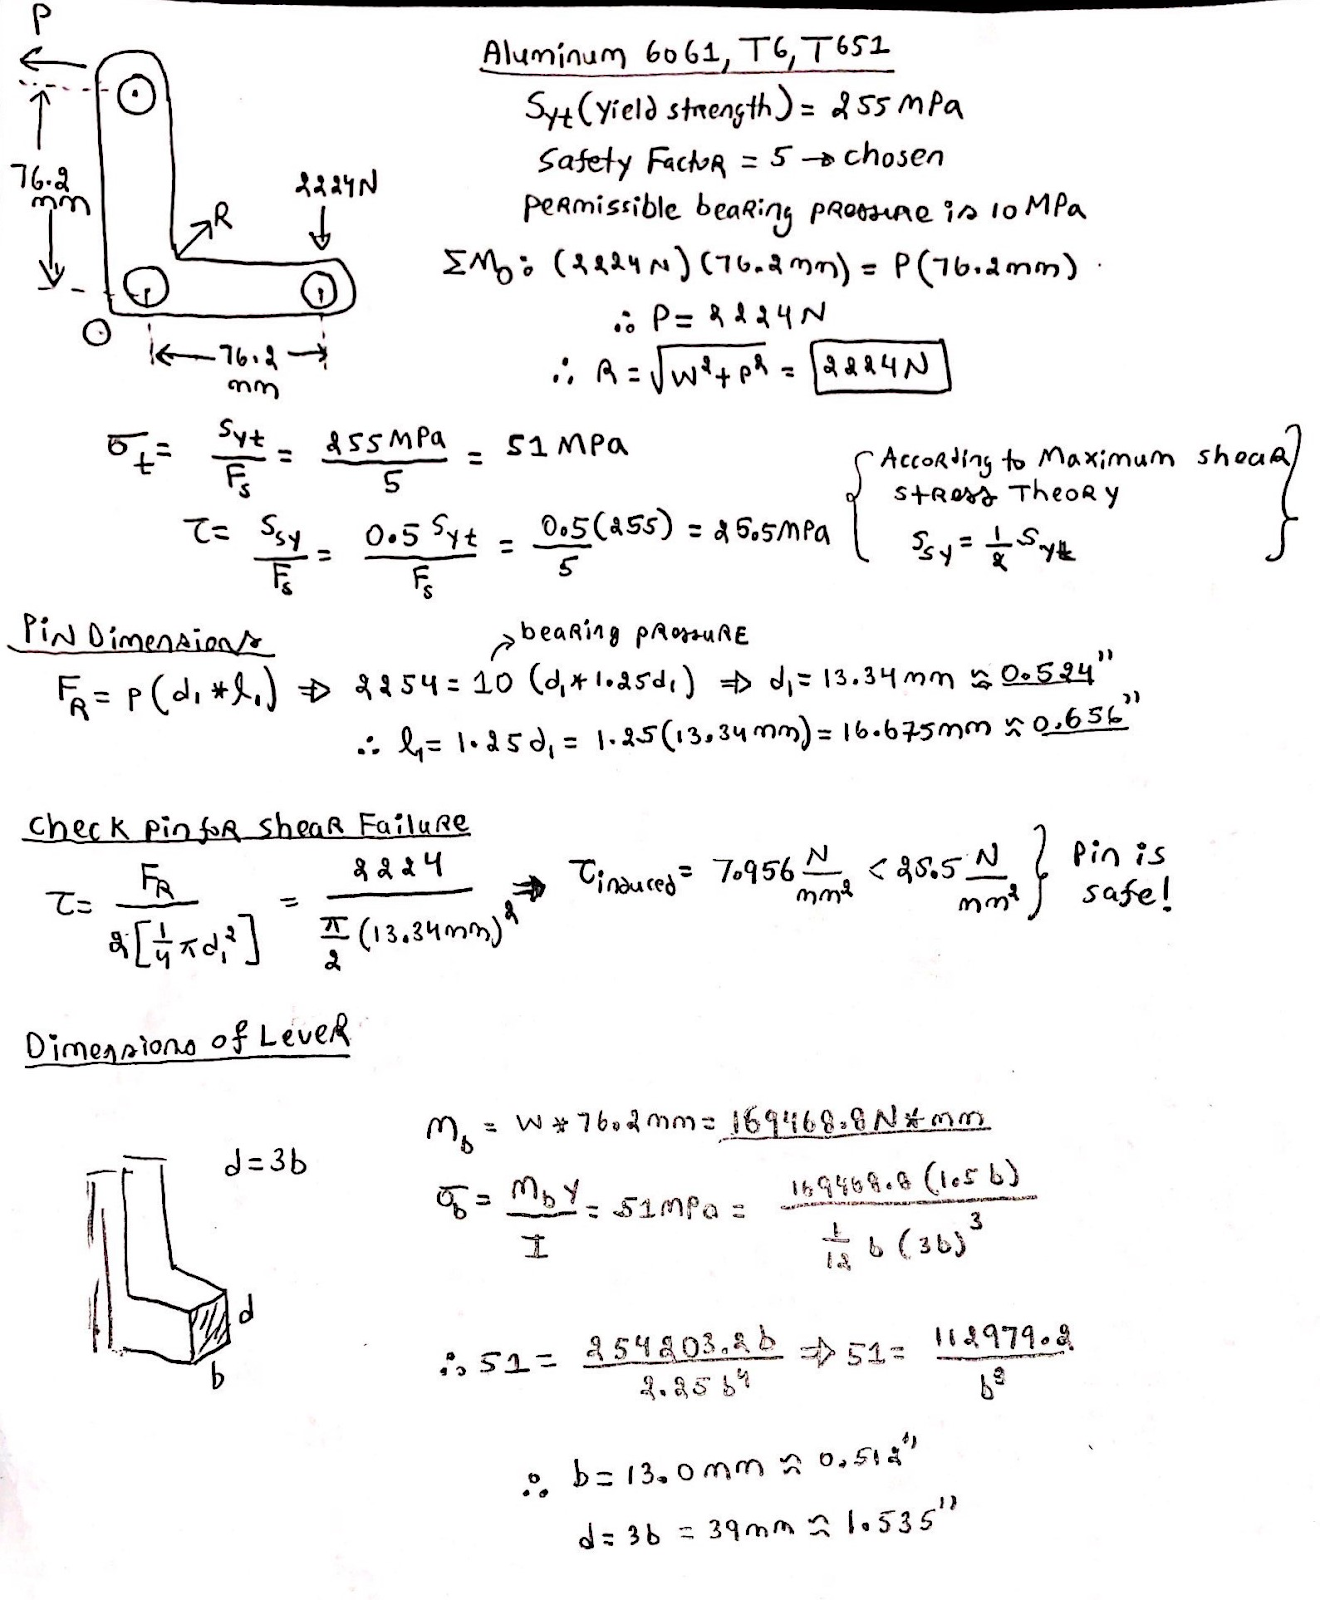 P
76.2
mm
R
2224N
O
76.2
mm
Aluminum 6061, T6, T651
Syt (Yield strength) = 255 MPa
Safety Factor = 5 → chosen
permissible bearing pressure is 10 MPa
ΣMo: (2224 N) (76.2 mm) = P(76.2mm)
∴ P = 2224N
∴ R = √W²+P² = 2224N
σt = Syt/Fs = 255 MPa/5 = 51 MPa
τ = Ssy/Fs = 0.5 Syt/Fs = 0.5(255)/5 = 25.5MPa
{According to Maximum shear
stress Theory
Ssy = 1/2 Syt}
Pin Dimensions
bearing pressure
FR = P(d₁*l₁) ⇒ 2254 = 10 (d₁*1.25d₁) ⇒ d₁ = 13.34 mm ≈ 0.524"
∴ l₁ = 1.25d₁ = 1.25(13.34mm) = 16.675mm ≈ 0.656"
check pin for shear Failure
τ = FR/2[1/4 πd₁²] = 2224/π/2 (13.34mm)² ⇒ τinduced = 7.956 N/mm² < 25.5 N/mm² } Pin is
safe!
Dimensions of Lever
d=3b
d
b
Mb = W * 76.2mm = 169468.8 N*mm
σb = Mb Y/I = 51MPa = 169468.8 (1.5 b)/1/12 b (3b)³
∴ 51 = 254203.2b/2.25 b⁴ ⇒ 51 = 112979.2/b³
∴ b = 13.0mm ≈ 0.512"
d = 3b = 39mm ≈ 1.535"